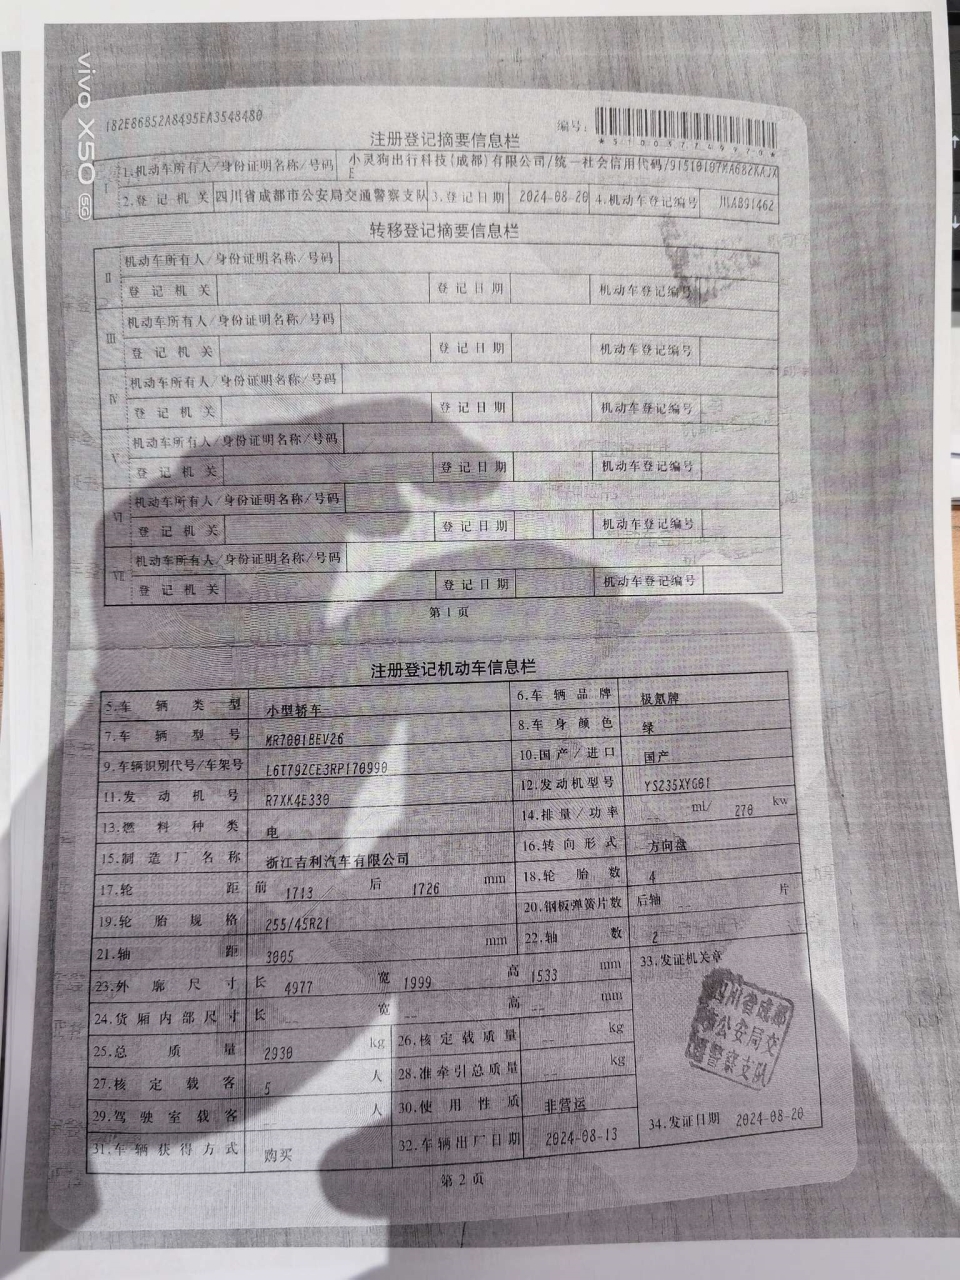 vivo X50 5G
182E86852A8495EA3548480
编号:
*510037749970*
注册登记摘要信息栏
Ⅰ 1.机动车所有人/身份证明名称/号码 小灵狗出行科技(成都)有限公司/统一社会信用代码/91510107MA682KAJXE
2.登记机关 四川省成都市公安局交通警察支队 3.登记日期 2024-08-20 4.机动车登记编号 川AB91462
转移登记摘要信息栏
Ⅱ 机动车所有人/身份证明名称/号码
登记机关 登记日期 机动车登记编号
Ⅲ 机动车所有人/身份证明名称/号码
登记机关 登记日期 机动车登记编号
Ⅳ 机动车所有人/身份证明名称/号码
登记机关 登记日期 机动车登记编号
Ⅴ 机动车所有人/身份证明名称/号码
登记机关 登记日期 机动车登记编号
Ⅵ 机动车所有人/身份证明名称/号码
登记机关 登记日期 机动车登记编号
Ⅶ 机动车所有人/身份证明名称/号码
登记机关 登记日期 机动车登记编号
第1页
注册登记机动车信息栏
5.车辆类型 小型轿车 6.车辆品牌 极氪牌
7.车辆型号 MR7001BEV26 8.车身颜色 绿
9.车辆识别代号/车架号 L6T79ZCE3RP170990 10.国产/进口 国产
11.发动机号 R7XK4E330 12.发动机型号 YS235XYG01
13.燃料种类 电 14.排量/功率 -- ml/ 270 kw
15.制造厂名称 浙江吉利汽车有限公司 16.转向形式 方向盘
17.轮距 前 1713 后 1726 mm 18.轮胎数 4
19.轮胎规格 255/45R21 20.钢板弹簧片数 后轴 -- 片
21.轴距 3005 mm 22.轴数 2
23.外廓尺寸 长 4977 宽 1999 高 1533 mm 33.发证机关章
24.货厢内部尺寸 长 -- 宽 -- 高 -- mm
四川省成都
市公安局交
通警察支队
25.总质量 2930 kg 26.核定载质量 -- kg
27.核定载客 5 人 28.准牵引总质量 -- kg
29.驾驶室载客 -- 人 30.使用性质 非营运
31.车辆获得方式 购买 32.车辆出厂日期 2024-08-13 34.发证日期 2024-08-20
第2页